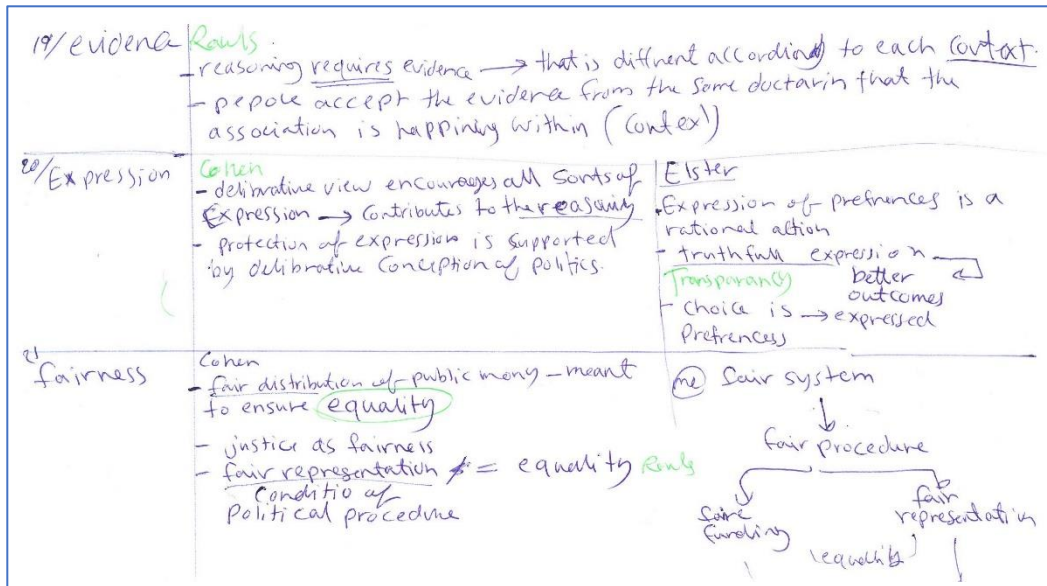 19/ evidena Rawls
- reasoning requires evidence → that is diffrent according to each context.
- pepole accept the evidence from the same doctarin that the
association is happining within (Contex)
20/ Expression
Cohen
- delibrative view encourages all sorts of
Expression → contributes to the reasoing
- protection of expression is supported
by delibrative Conception of politics.
Elster
- Expression of prefrences is a
rational action
- truthfull expression
better
outcomes
Transparancy
- choice is → expressed
prefrencess
21 fairness
Cohen
- fair distribution of public mony - meant
to ensure equality
- justice as fairness
- fair representation = equality Rawls
Conditio of
political procedure
me fair system
↓
fair procedure
faire
funding
fair
representation
equality